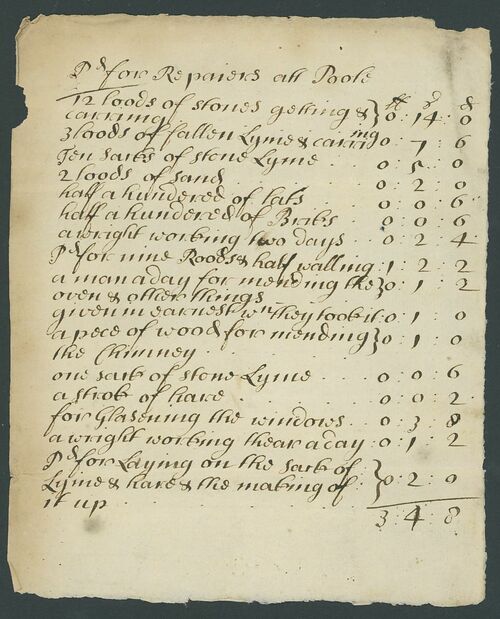 Pd for Repaiers att Poole
li s d
12 loods of stones getting &
carring } 0 : 14 : 0
3 loods of fallen Lyme & carriing 0 : 7 : 6
Ten sarks of stone Lyme 0 : 5 : 0
2 loods of sand 0 : 2 : 0
half a hundered of lats 0 : 0 : 6
half a hundered of Briks 0 : 0 : 6
a wright working two days 0 : 2 : 4
Pd for nine Roods & half walling 1 : 2 : 2
a man a day for mending the
oven & other things } 0 : 1 : 2
given in earnest wn they took it 0 : 1 : 0
a pece of wood for mending
the Chimney } 0 : 1 : 0
one sark of stone Lyme 0 : 0 : 6
a strok of hare 0 : 0 : 2
for Glasening the windows 0 : 3 : 8
a wright working thear a day 0 : 1 : 2
Pd for Laying on the sark of
Lyme & hare & the making of } 0 : 2 : 0
it up
3 : 4 : 8